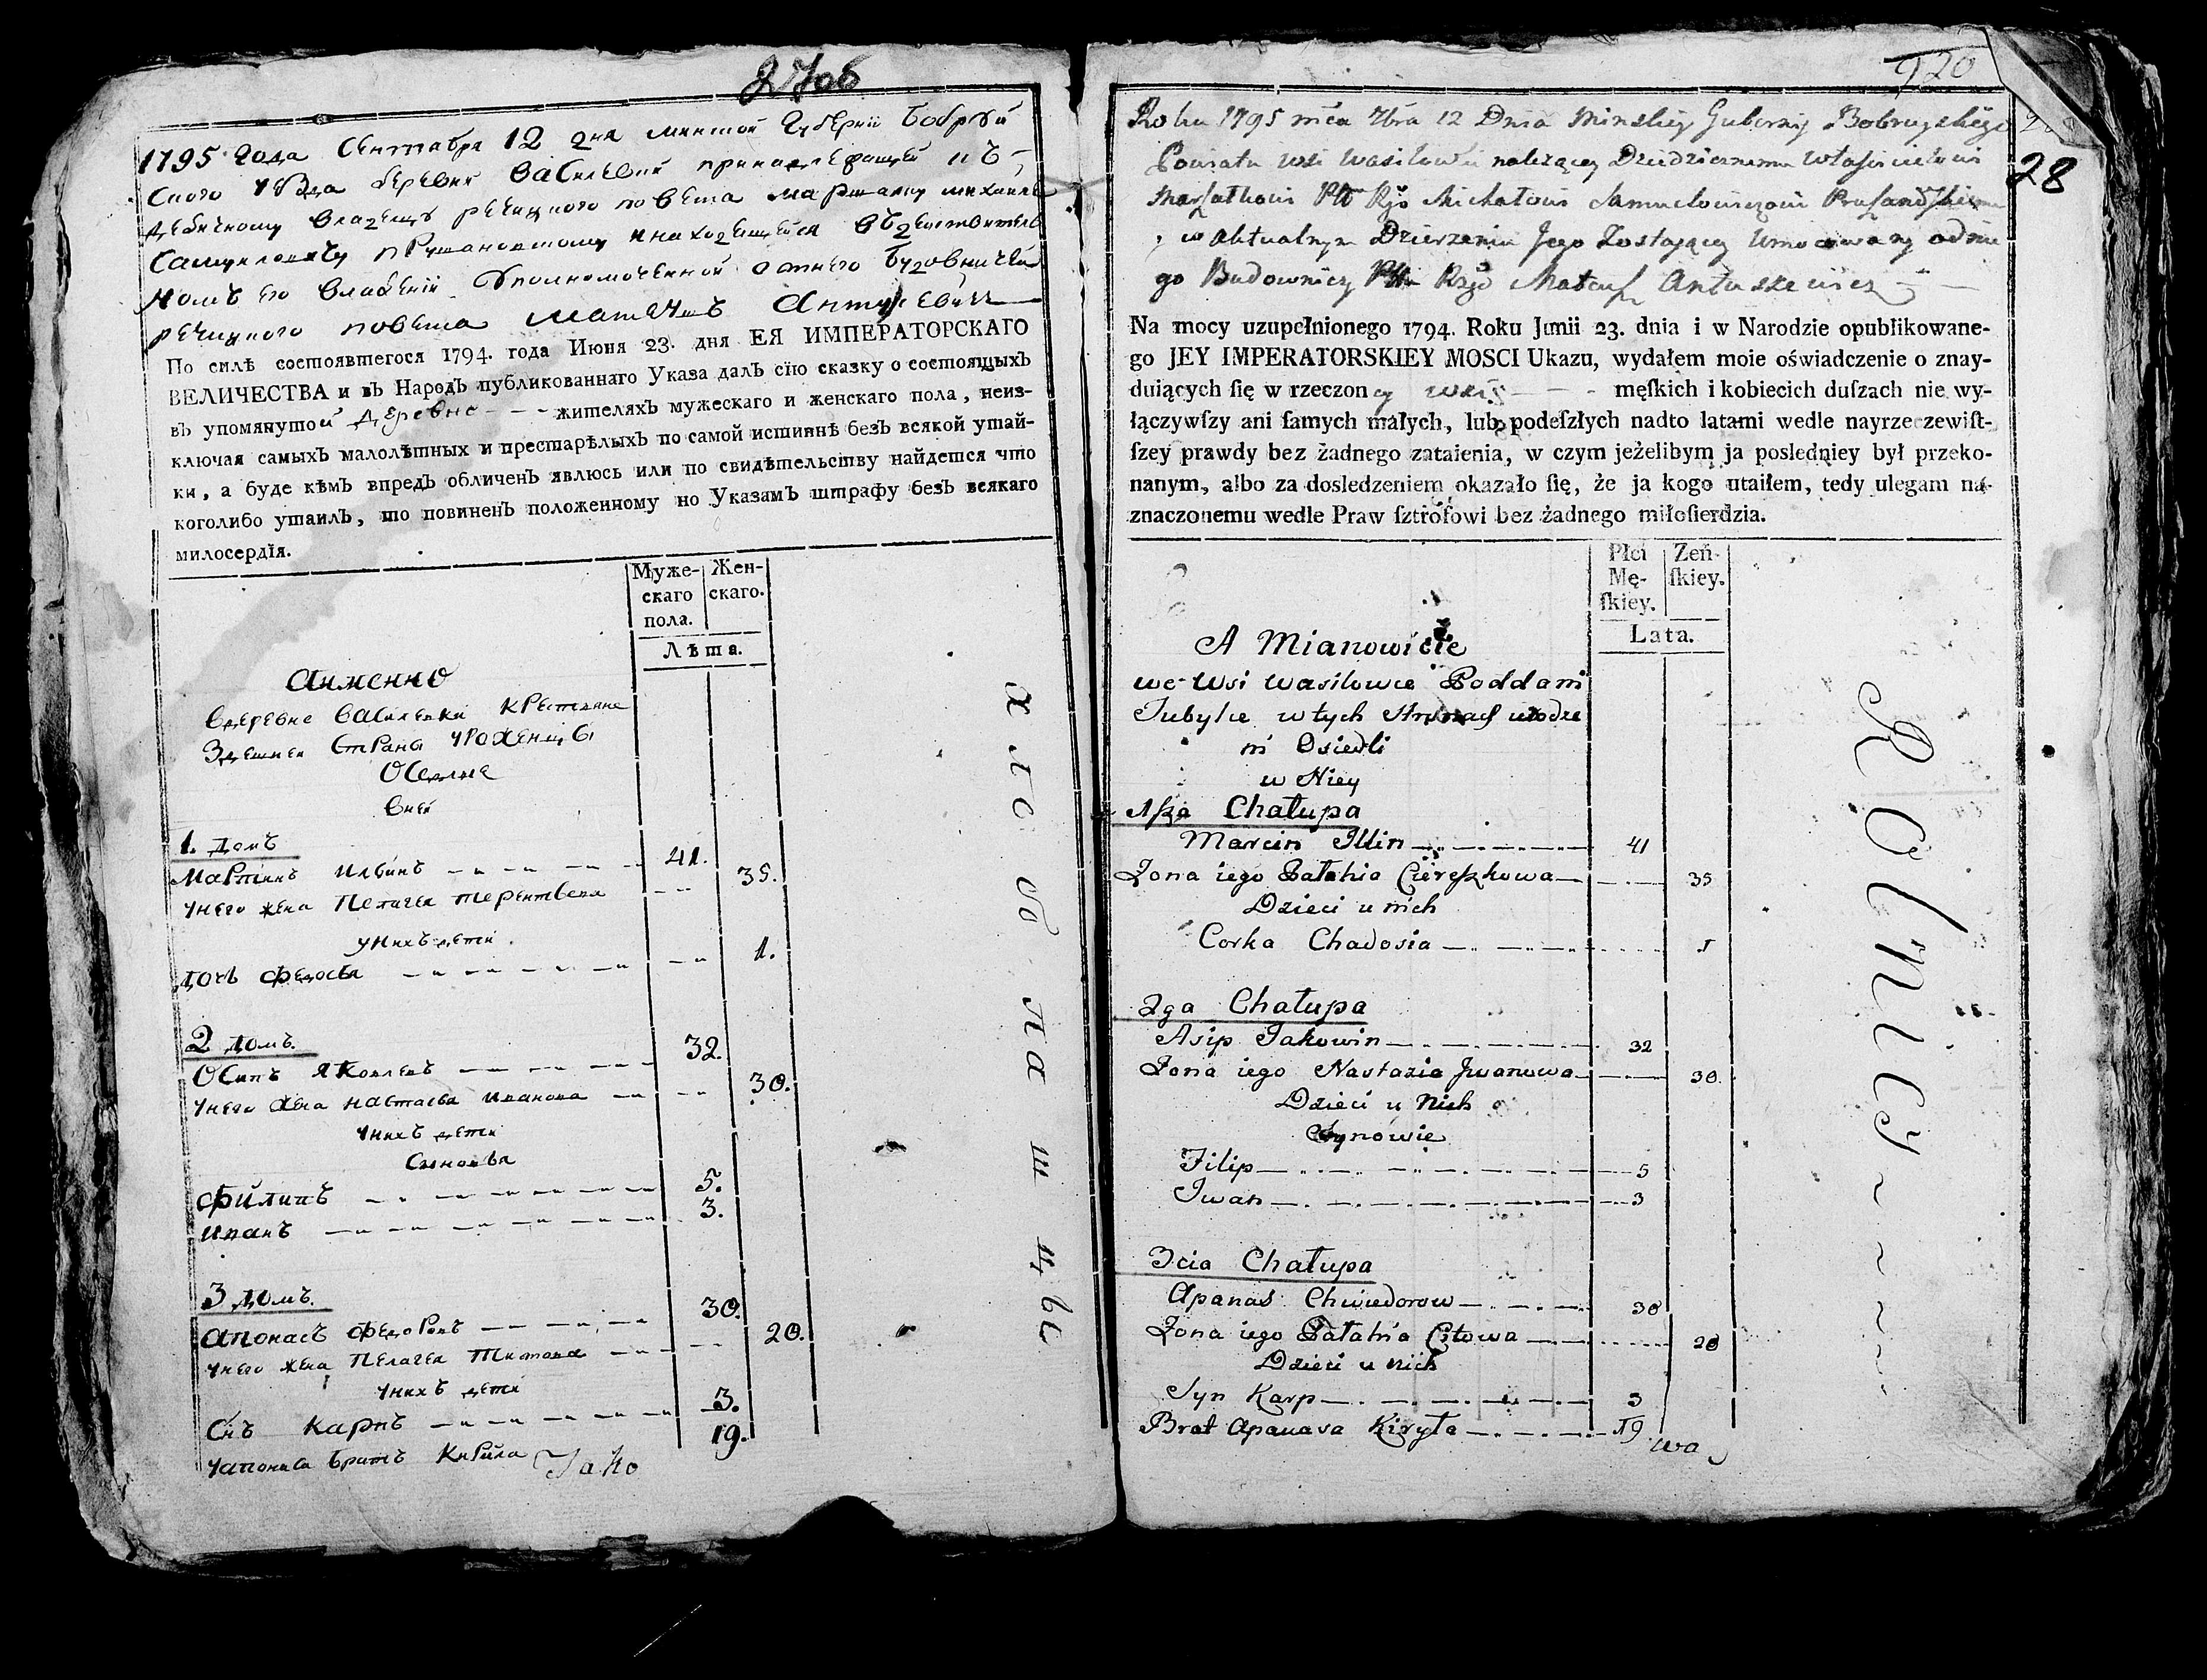 27об
1795 года Сентября 12 дня Минской Губернии Бобруй
ского уезда деревни Василевки принадлежащей
владельцу речицкого повета маршалку михаилу
Самуиловичу Прушановскому и находящейся
его владении уполномоченной от него Будовничей
речицкого повета Матеушъ Антушевичь
По силѣ состоявшегося 1794. года Июня 23. дня ЕЯ ИМПЕРАТОРСКАГО
ВЕЛИЧЕСТВА и въ Народъ публикованнаго Указа далъ сїю сказку о состоящыхъ
въ упомянутой деревне - - - жителяхъ мужескаго и женскаго пола, неиз-
ключая самыхъ малолѣтныхъ и престарѣлыхъ по самой истиннѣ безъ всякой утай-
ки, а буде кѣмъ впредь обличенъ явлюсь или по свидѣтельству найдется что
коголибо утаилъ, то повиненъ положенному по Указамъ штрафу безъ всякаго
милосердїя.
Муже-скаго пола. Жен-скаго.
Лѣта.
Аименно
Вдеревне Василевки крестьяне
Здешней страны уроженцы
Оседлые
Вней
1. домъ
Мартинъ Ильинъ 41.
унего жена Пелагея терентьева 35.
унихъ дети
дочь федосья 1.
2 домъ.
Осипъ Яковлевъ 32.
унего жена настасья иванова 30.
унихъ дети
Сыновья
филипъ 5.
иванъ 3.
3 домъ.
апонасъ федоровъ 30.
унего жена пелагея титова 20.
унихъ дети
Снъ карпъ 3.
уапонаса братъ Кирила 19.
Яко
хлебопашцы
920
28
Roku 1795 mca 7bra 12 Dnia Minskiey Gubernij Bobruyskiego
Powiatu wsi Wasilowki nalezącey Dziedzicznemu Włascicielowi
Marszałkowi Ptu Rzgo Michałowi Samuelowiczowi Pruszanowskiemu
w aktualnym Dzierzeniu Jego Zostaiącey Umocowany odnie
go Budowniczy Ptu Rzgo Mateusz Antuszewicz
Na mocy uzupełnionego 1794. Roku Junii 23. dnia i w Narodzie opublikowane-
go JEY IMPERATORSKIEY MOSCI Ukazu, wydałem moie oświadczenie o znay-
duiących ſię w rzeczoney wsi - - męſkich i kobiecich duſzach nie wy-
łączywſzy ani ſamych małych, lub podeſzłych nadto latami wedle nayrzeczewiſt-
ſzey prawdy bez żadnego zataienia, w czym jeżelibym ja posledniey był przeko-
nanym, albo za dosledzeniem okazało ſię, że ja kogo utaiłem, tedy ulegam na-
znaczonemu wedle Praw ſztrofowi bez żadnego miłoſierdzia.
Płci Mę-ſkiey. Zeń-ſkiey.
Lata.
A Mianowicie
we Wsi Wasilowce Poddani
Tubylce w tych Stronach urodze
ni Osiedli
w Niey
1sza Chałupa
Marcin Illin 41
Zona iego Pałahia Ciereszkowa 35
Dzieci u nich
Corka Chadosia 1
2ga Chałupa
Asip Jakowin 32
Zona iego Nastazia Jwanowa 30.
Dzieci u Nich
Synowie
Filip 5
Iwan 3
3cia Chałupa
Apanas Chwiedorow 30
Zona iego Pałahia Citowa 20
Dzieci u nich
Syn Karp 3
Brat Apanasa Kiryła 19
wa
Rolnicy